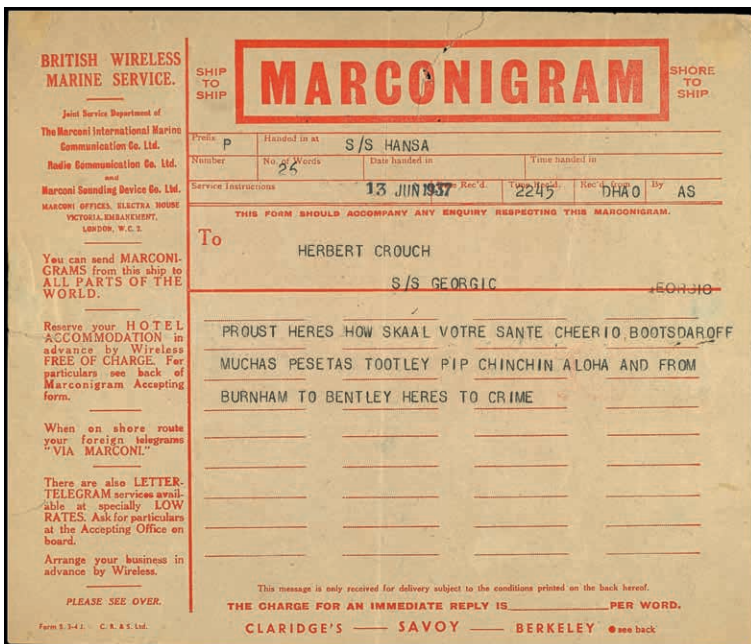 BRITISH WIRELESS
MARINE SERVICE.
Joint Service Department of
The Marconi International Marine
Communication Co. Ltd.
Radio Communication Co. Ltd.
and
Marconi Sounding Device Co. Ltd.
MARCONI OFFICES, ELECTRA HOUSE
VICTORIA, EMBANKMENT,
LONDON, W.C. 2.
You can send MARCONI-
GRAMS from this ship to
ALL PARTS OF THE
WORLD.
Reserve your HOTEL
ACCOMMODATION in
advance by Wireless
FREE OF CHARGE. For
particulars see back of
Marconigram Accepting
form.
When on shore route
your foreign telegrams
"VIA MARCONI."
There are also LETTER-
TELEGRAM services avail-
able at specially LOW
RATES. Ask for particulars
at the Accepting Office on
board.
Arrange your business in
advance by Wireless.
PLEASE SEE OVER.
Form S. 3-4 J. C. R. & S. Ltd.
SHIP
TO
SHIP
MARCONIGRAM
SHORE
TO
SHIP
Prefix P Handed in at S/S HANSA
Number No. of Words 25 Date handed in Time handed in
Service Instructions 13 JUN 1937 Rec'd. Time Rec'd. 2245 Rec'd from DHAO By AS
THIS FORM SHOULD ACCOMPANY ANY ENQUIRY RESPECTING THIS MARCONIGRAM.
To
HERBERT CROUCH
S/S GEORGIC
PROUST HERES HOW SKAAL VOTRE SANTE CHEERIO BOOTSDAROFF
MUCHAS PESETAS TOOTLEY PIP CHINCHIN ALOHA AND FROM
BURNHAM TO BENTLEY HERES TO CRIME
This message is only received for delivery subject to the conditions printed on the back hereof.
THE CHARGE FOR AN IMMEDIATE REPLY IS PER WORD.
CLARIDGE'S — SAVOY — BERKELEY ● see back